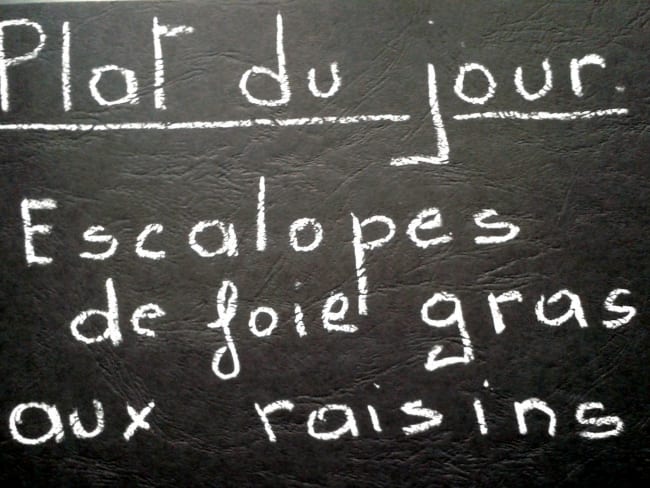 Plat du jour
Escalopes
de foie gras
aux raisins